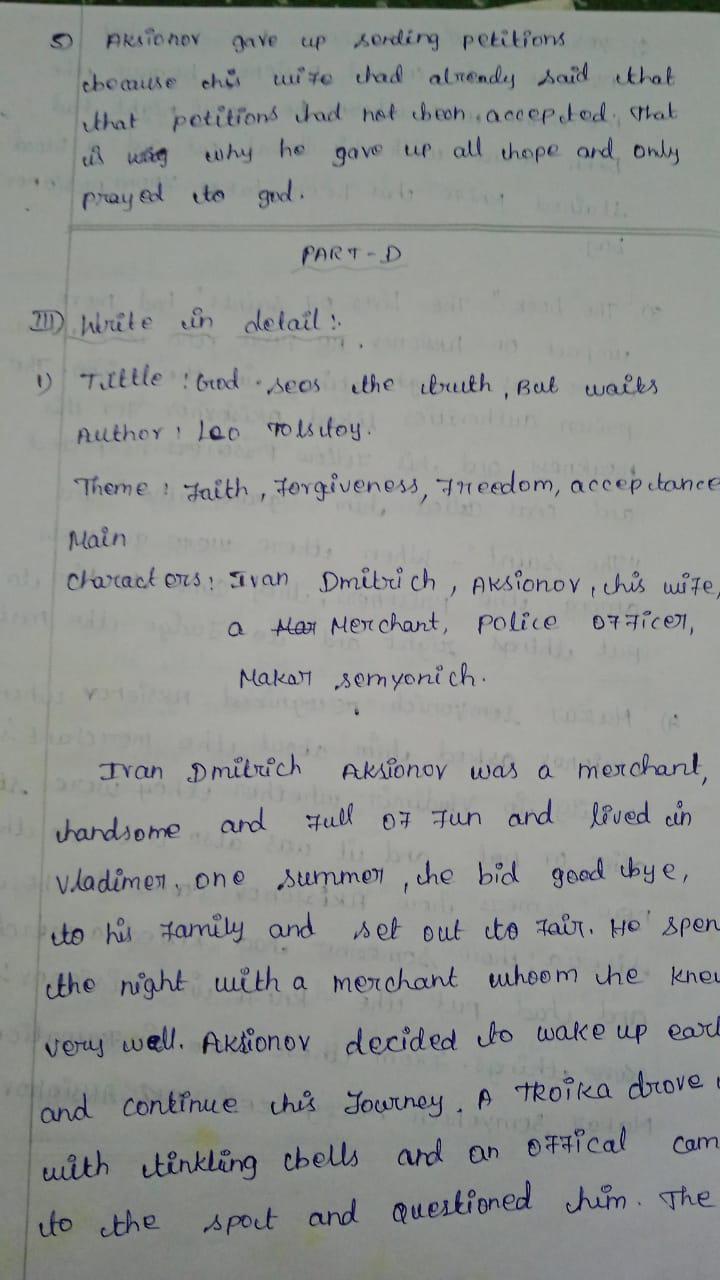 5) Aksionov gave up sending petitions
because his wife had already said that
that petitions had not been accepted. That
is why he gave up all hope and only
prayed to god.
PART-D
III) Write in detail:
1) Tittle: God sees the truth, But waits
Author: Leo Tolstoy.
Theme: Faith, Forgiveness, Freedom, acceptance
Main
Charactors: Ivan Dmitrich, Aksionov, his wife,
a Merchant, police officer,
Makar semyonich.
Ivan Dmitrich Aksionov was a merchant,
handsome and full of fun and lived in
Vladimer. one summer, he bid good bye,
to his family and set out to fair. He spen
the night with a merchant whoom he knew
very well. Aksionov decided to wake up earl
and continue his Journey. A TROIKA drove
with tinkling bells and an offical cam
to the spot and questioned him. The